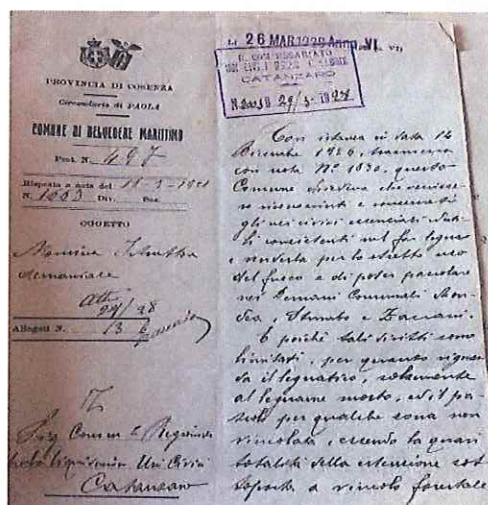 PROVINCIA DI COSENZA
Circondario di PAOLA
COMUNE DI BELVEDERE MARITTIMO
Prot. N. 497
Risposta a nota del
N. 1063 Div. Sez.
OGGETTO
Nomina
demaniale
Atti
29/28
Allegati N. 13
Catanzaro
li 26 MAR 1928 Anno VI
R. COMMISSARIATO
CATANZARO
29/3-1928
Con istanza in data 14
Dicembre 1926, trasmessa
con nota N° 1830, questo
Comune chiedeva che venisse-
ro riconosciuti e conservati
gli usi civici essenziali uti-
li consistenti nel far legna
e per lo stretto uso
del fuoco e di poter pascolare
nei Demani Comunali
e
E poichè tali diritti sono
limitati, per quanto riguar-
da il legnatico, solamente
al legname morto, ed il pa-
scolo per qualche zona non
vincolata, essendo la quasi
totalità della estensione sot-
toposta a vincolo forestale